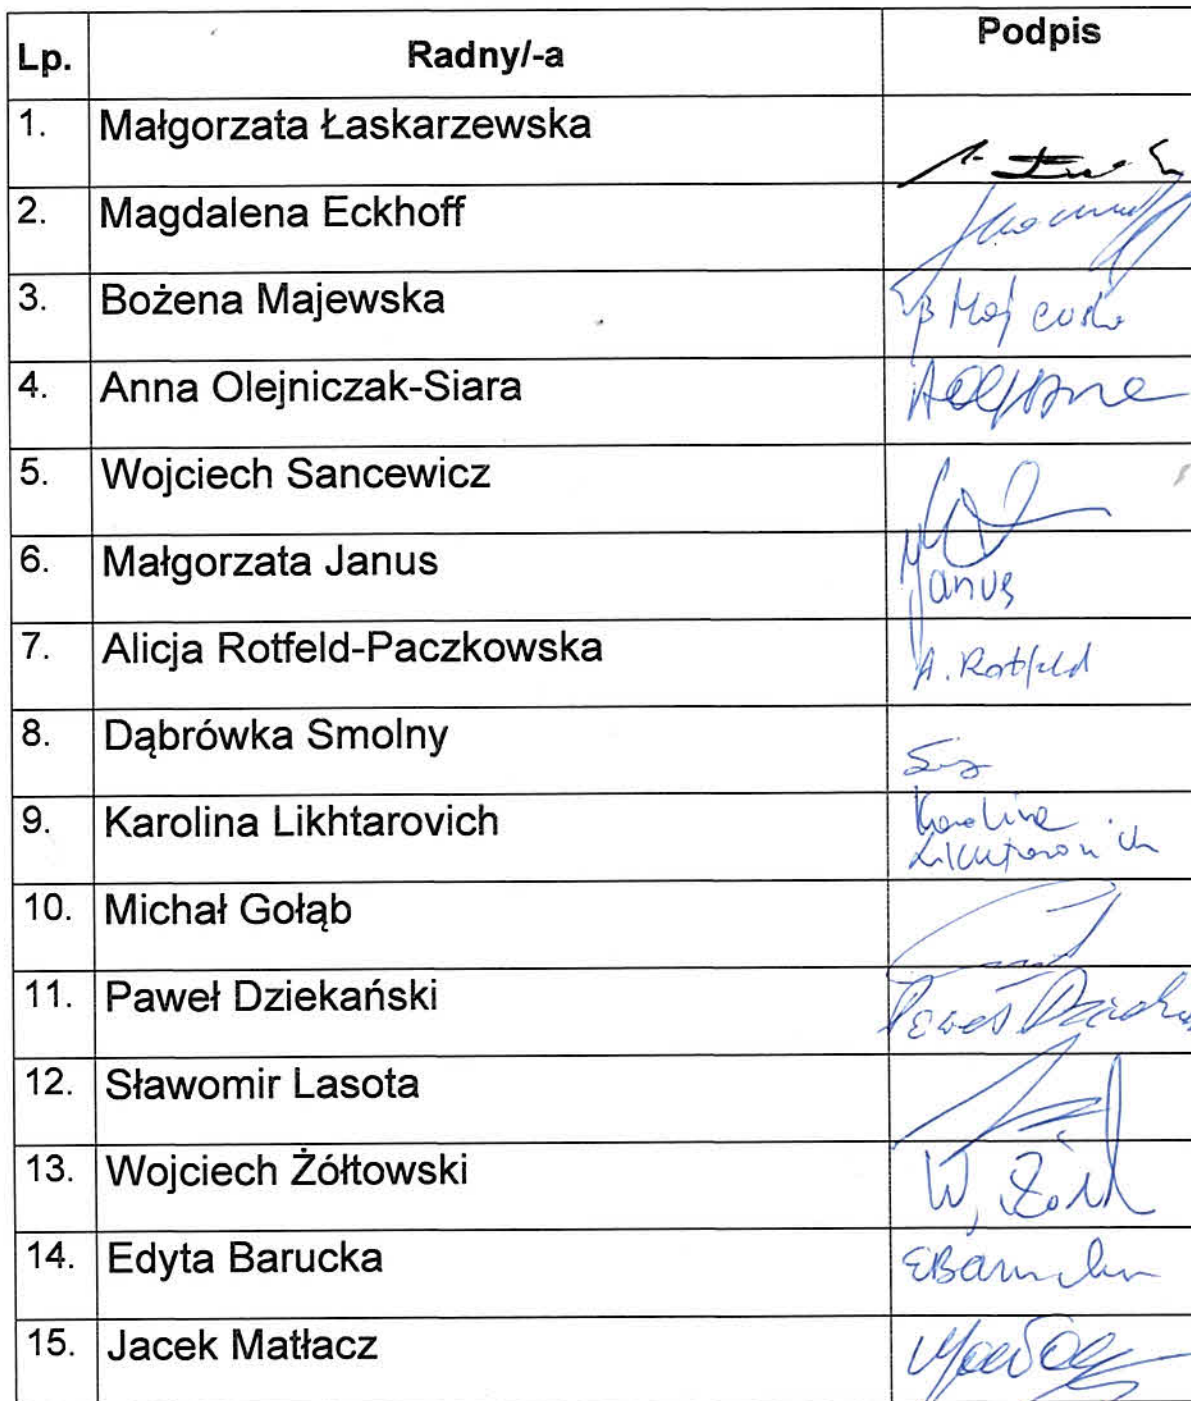 Lp. Radny/-a Podpis
1. Małgorzata Łaskarzewska
2. Magdalena Eckhoff
3. Bożena Majewska B Majewska
4. Anna Olejniczak-Siara
5. Wojciech Sancewicz
6. Małgorzata Janus Janus
7. Alicja Rotfeld-Paczkowska A. Rotfeld
8. Dąbrówka Smolny
9. Karolina Likhtarovich Karolina
Likhtarovich
10. Michał Gołąb
11. Paweł Dziekański Paweł
12. Sławomir Lasota
13. Wojciech Żółtowski W. Żół
14. Edyta Barucka EBarucka
15. Jacek Matłacz